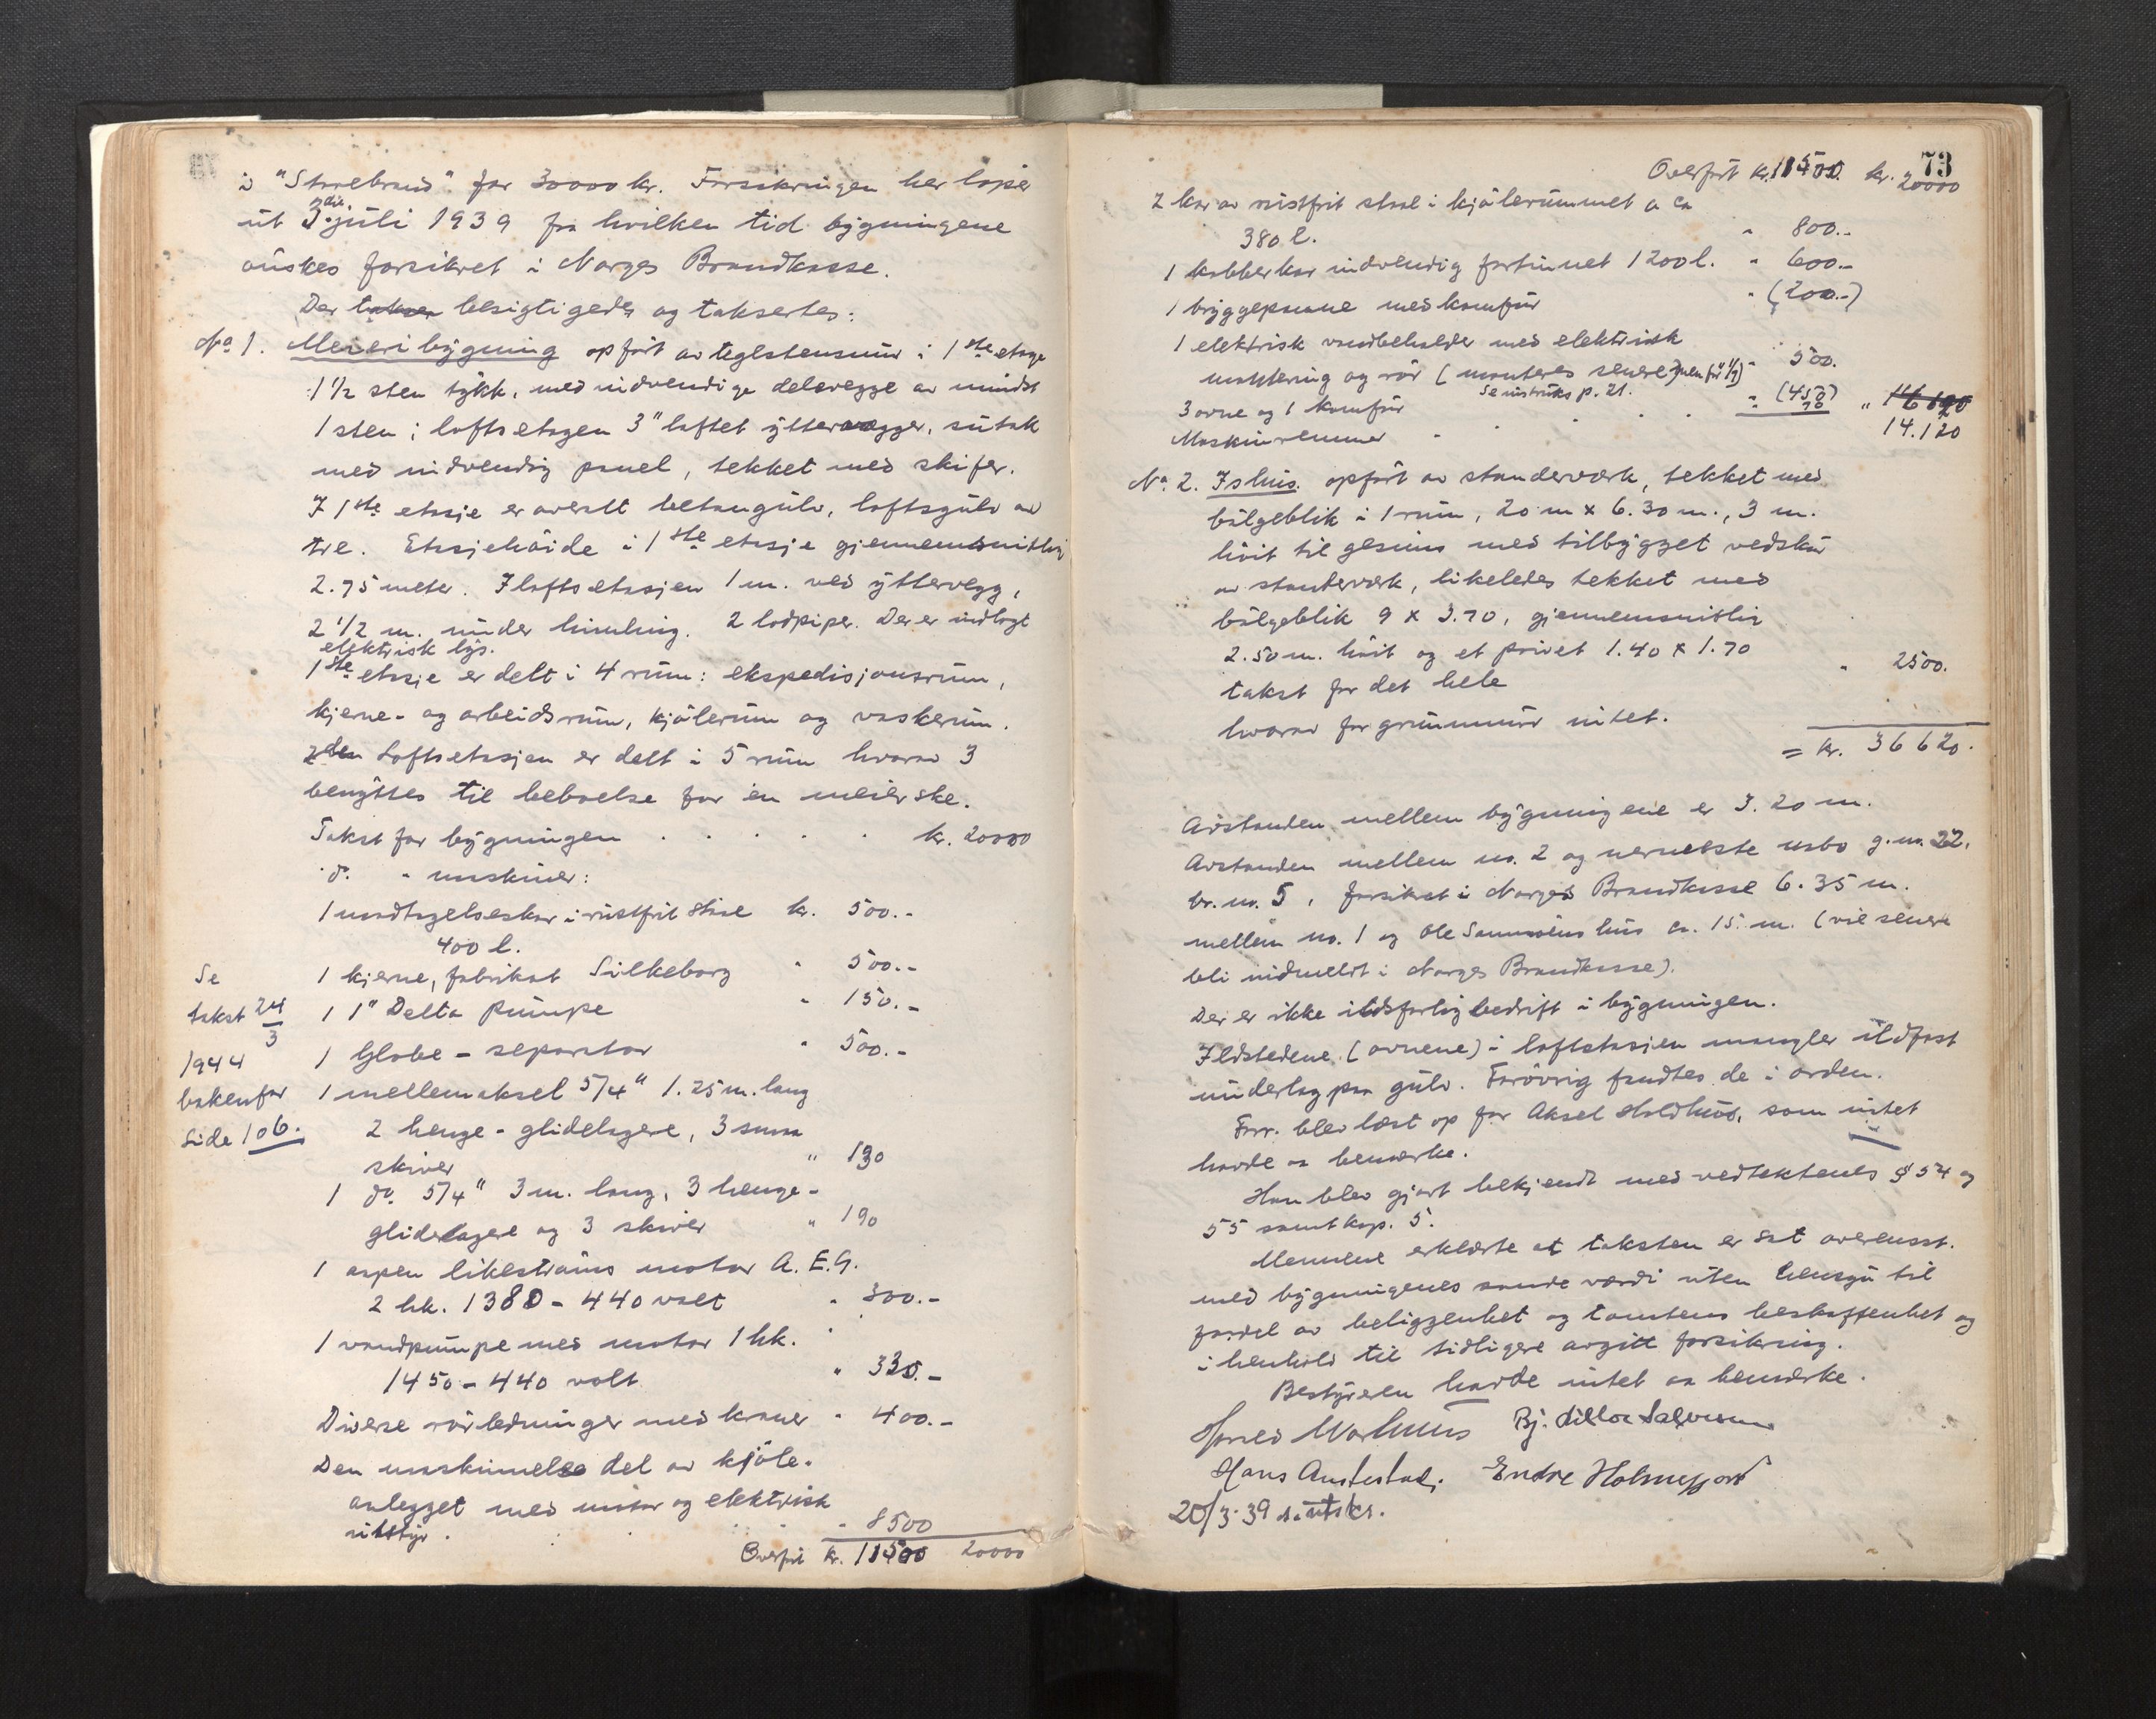 i "Storebrand" for 30000 kr. Forsikringen her löper
ut 3die juli 1939 fra hvilken tid bygningene
önskes forsikret i Norges Brandkasse.
Der takser besigtigedes og taksertes:
No 1. Meieribygning opfört av teglstensmur i 1ste etage
1 1/2 sten tykk, med indvendige delevegge av mindst
1 sten i loftsetagen 3" laftet yttervegger, sutak
med indvendig panel, tekket med skifer.
I 1ste etasje er overalt betongulv, loftsgulv av
tre. Etasjehöide i 1ste etasje gjennemsnitlig
2.75 meter. I loftsetasjen 1 m. ved yttervegg,
2 1/2 m. under himling. 2 lodpiper. Der er indlagt
elektrisk lys.
1ste etasje er delt i 4 rum: ekspedisjonsrum,
kjerne- og arbeidsrum, kjölerum og vaskerum.
2den Loftsetasjen er delt i 5 rum hvorav 3
benyttes til beboelse for en meierske.
Takst for bygningen . . . . . kr. 20000
do. " maskiner:
1 modtagelseskar i rustfrit staal kr. 500.-
400 l.
1 kjerne, fabrikat Silkeborg " 500.-
1 1" Delta pumpe " 150.-
1 Globe - separator " 500.-
1 mellemaksel 5/4" 1.25 m. lang
2 henge - glidelagere, 3 smaa
skiver " 130
1 do. 5/4" 3 m. lang, 3 henge-
glidelagere og 3 skiver " 190
1 aapen likeströms motor A.E.G.
2 hk. 1380 - 440 volt " 300.-
1 vandpumpe med motor 1 hk.
1450 - 440 volt " 330.-
Diverse rörledninger med kraner " 400.-
Den maskinnelle del av kjöle-
anlegget med motor og elektrisk
utstyr. " 8500
Overfört kr. 11500 20000
Se
takst 24/3
1944
bakenfor
side 106.
73
Overfört kr. 11500. kr. 20000
2 kar av rustfrit staal i kjölerummet a ca
380 l. " 800.-
1 kobberkar indvendig fortinnet 1200 l. " 600.-
1 bryggepanne med komfur " (200.-)
1 elektrisk vandbeholder med elektrisk
montering og rör (monteres senere) men för 1/7) " 500.
Se instruks p. 21.
3 ovne og 1 komfür " (450)
Maskinremmer . . . . 70 " 14.120
No. 2. Ishus. opfört av standerverk, tekket med
bölgeblik i 1 rum, 20 m x 6.30 m., 3 m.
höit til gesims med tilbygget vedskur
av standerverk, likeledes tekket med
bölgeblik 9 x 3.70, gjennemsnitlig
2.50 m. höit og et privet 1.40 x 1.70
takst for det hele " 2500.
hvorav for grunnmur intet.
= kr. 36620.
Avstanden mellem bygningene er 3.20 m.
Avstanden mellem no. 2 og nermeste nabo g.nr. 22,
br.nr. 5, forsikret i Norges Brandkasse 6.35 m.
mellem no. 1 og Ole hus ca. 15 m. (vil senere
bli indmeldt i Norges Brandkasse).
Der er ikke ildsfarlig bedrift i bygningen.
Ildstedene (ovnene) i loftetasjen mangler ildfast
underlag paa gulv. Forövrig fandtes de i orden.
Forr. blev læst op for Aksel Holdhus, som intet
hadde aa bemerke.
Han blev gjort bekjendt med vedtektenes § 54 og
55 samt kap. 5.
Mennene erklærte at taksten er sat overensst.
med bygningenes sande værdi uten hensyn til
fordel av beliggenhet og tomtens beskaffenhet og
i henhold til tidligere avgitt forsikring.
Bestyreren hadde intet aa bemærke.
Bj. Salvesen
Hans Austestad. Endre Holmefjord
20/3-39 s. utskr.